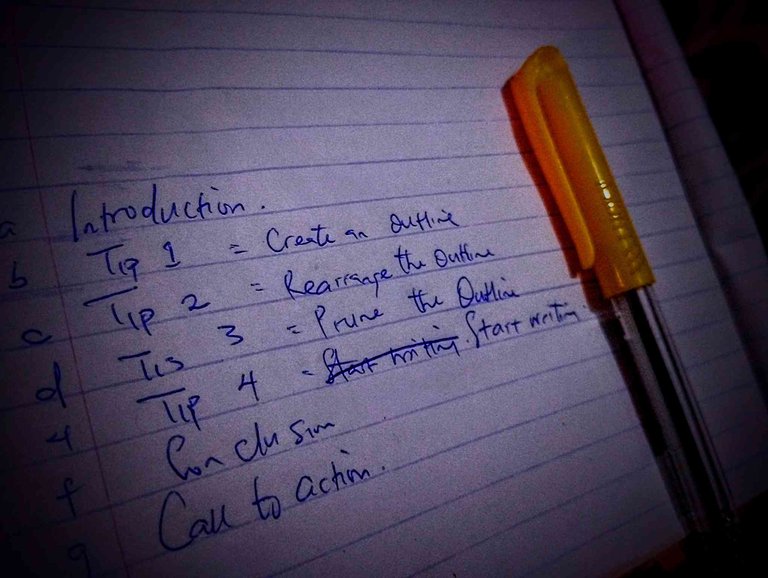 a Introduction.
b Tip 1 = Create an outline
c Tip 2 = Rearrange the Outline
d Tis 3 = Prune the Outline
4 Tip 4 = Start writing. Start writing.
f Conclusion
g Call to action.